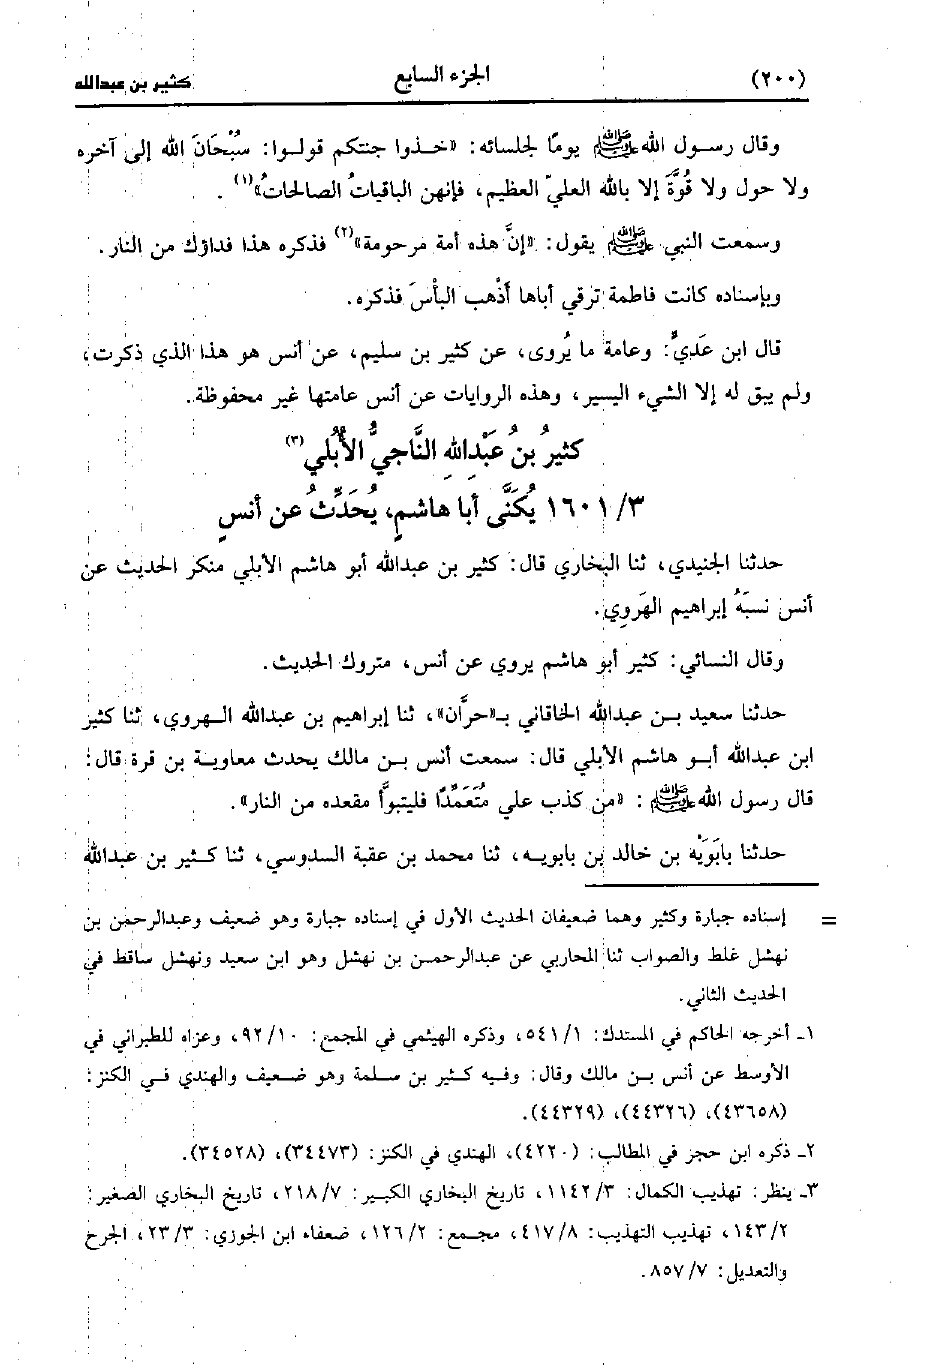 (٢٠٠) الجزء السابع كثير بن عبدالله
وقال رسول الله ﷺ يومًا لجلسائه: «خـذوا جنتكم قولـوا: سُبْحَانَ الله إلى آخره
ولا حول ولا قُوَّةَ إلا بالله العليّ العظيم، فإنهن الباقياتُ الصالحاتُ»(١).
وسمعت النبي ﷺ يقول: «إنَّ هذه أمة مرحومة»(٢) فذكره هذا فداؤك من النار.
وبإسناده كانت فاطمة ترقي أباها أَذْهب البأْسَ فذكره.
قال ابن عَديٍّ: وعامة ما يُروى، عن كثير بن سليم، عن أنس هو هذا الذي ذكرت،
ولم يبق له إلا الشيء اليسير، وهذه الروايات عن أنس عامتها غير محفوظة.
كثيرُ بنُ عَبْدِاللهِ النَّاجيُّ الأُبُلي(٣)
١٦٠١/٣ يُكَنَّى أبا هاشمٍ، يُحَدِّثُ عن أنسٍ
حدثنا الجنيدي، ثنا البخاري قال: كثير بن عبدالله أبو هاشم الأبلي منكر الحديث عن
أنس نسبَهُ إبراهيم الهَرَوِي.
وقال النسائي: كثير أبو هاشم يروي عن أنس، متروك الحديث.
حدثنا سعيد بـن عبدالله الخاقاني بـ«حرَّان»، ثنا إبراهيم بن عبدالله الهروي، ثنا كثير
ابن عبدالله أبـو هاشم الأبلي قال: سمعت أنس بـن مالك يحدث معاويـة بن قرة قال:
قال رسول الله ﷺ: «من كذب علي مُتَعَمِّدًا فليتبوَّأ مقعده من النار».
حدثنا بابَوَيْه بن خالد بن بابويـه، ثنا محمد بن عقبة السدوسي، ثنا كـثير بن عبدالله
= إسناده جبارة وكثير وهما ضعيفان الحديث الأول في إسناده جبارة وهو ضعيف وعبدالرحمن بن
نهشل غلط والصواب ثنا المحاربي عن عبدالرحمـن بن نهشل وهو ابن سعيد ونهشل ساقط في
الحديث الثاني.
١ـ أخرجه الحاكم في المستدك: ٥٤١/١، وذكره الهيثمي في المجمع: ٩٢/١٠، وعزاه للطبراني في
الأوسط عن أنس بـن مالك وقال: وفيه كثير بن سلمة وهو ضعيف والهندي في الكنز:
(٤٣٦٥٨)، (٤٤٣٢٦)، (٤٤٣٢٩).
٢ـ ذكره ابن حجز في المطالب: (٤٢٢٠)، الهندي في الكنز: (٣٤٤٧٣)، (٣٤٥٢٨).
٣ـ ينظر: تهذيب الكمال: ١١٤٢/٣، تاريخ البخاري الكبير: ٢١٨/٧، تاريخ البخاري الصغير:
١٤٣/٢، تهذيب التهذيب: ٤١٧/٨، مجمـع: ١٢٦/٢، ضعفاء ابن الجوزي: ٢٣/٣، الجرح
والتعديل: ٨٥٧/٧.